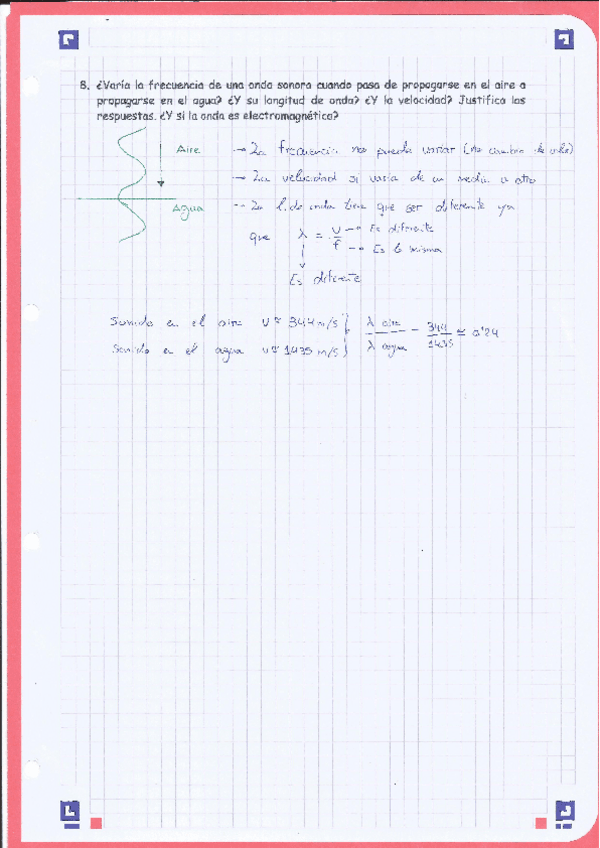 8. ¿Varía la frecuencia de una onda sonora cuando pasa de propagarse en el aire a
propagarse en el agua? ¿Y su longitud de onda? ¿Y la velocidad? Justifica las
respuestas. ¿Y si la onda es electromagnética?
Aire
Agua
→ La frecuencia no puede variar (no cambia de onda)
→ La velocidad si varía de un medio a otro
→ La l. de onda tiene que ser diferente ya
que λ = v/f → Es diferente
→ Es la misma
Es diferente
Sonido en el aire v ≈ 344 m/s
Sonido en el agua v ≈ 1435 m/s
λ aire / λ agua = 344 / 1435 ≃ 0'24